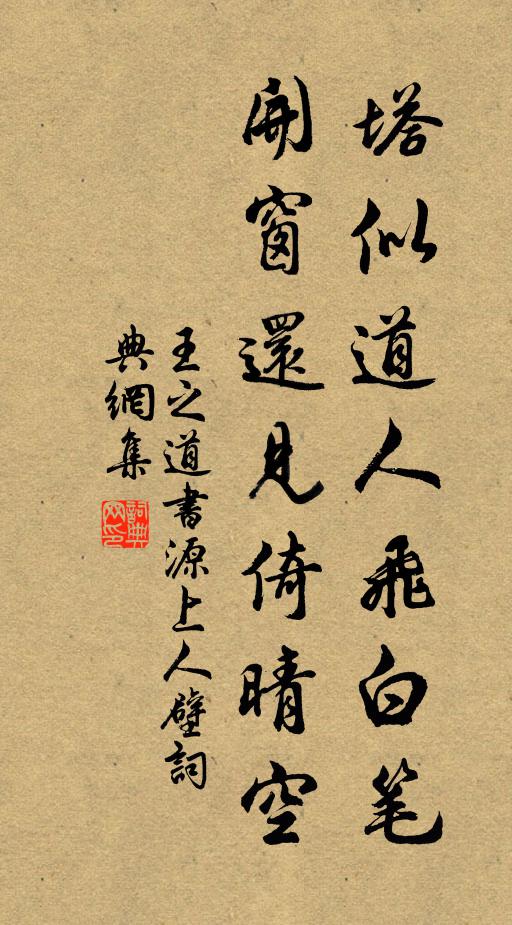 塔似道人飛白笔
開窗還見倚晴空
王之道書源上人壁詞
典網集
詞典
网印